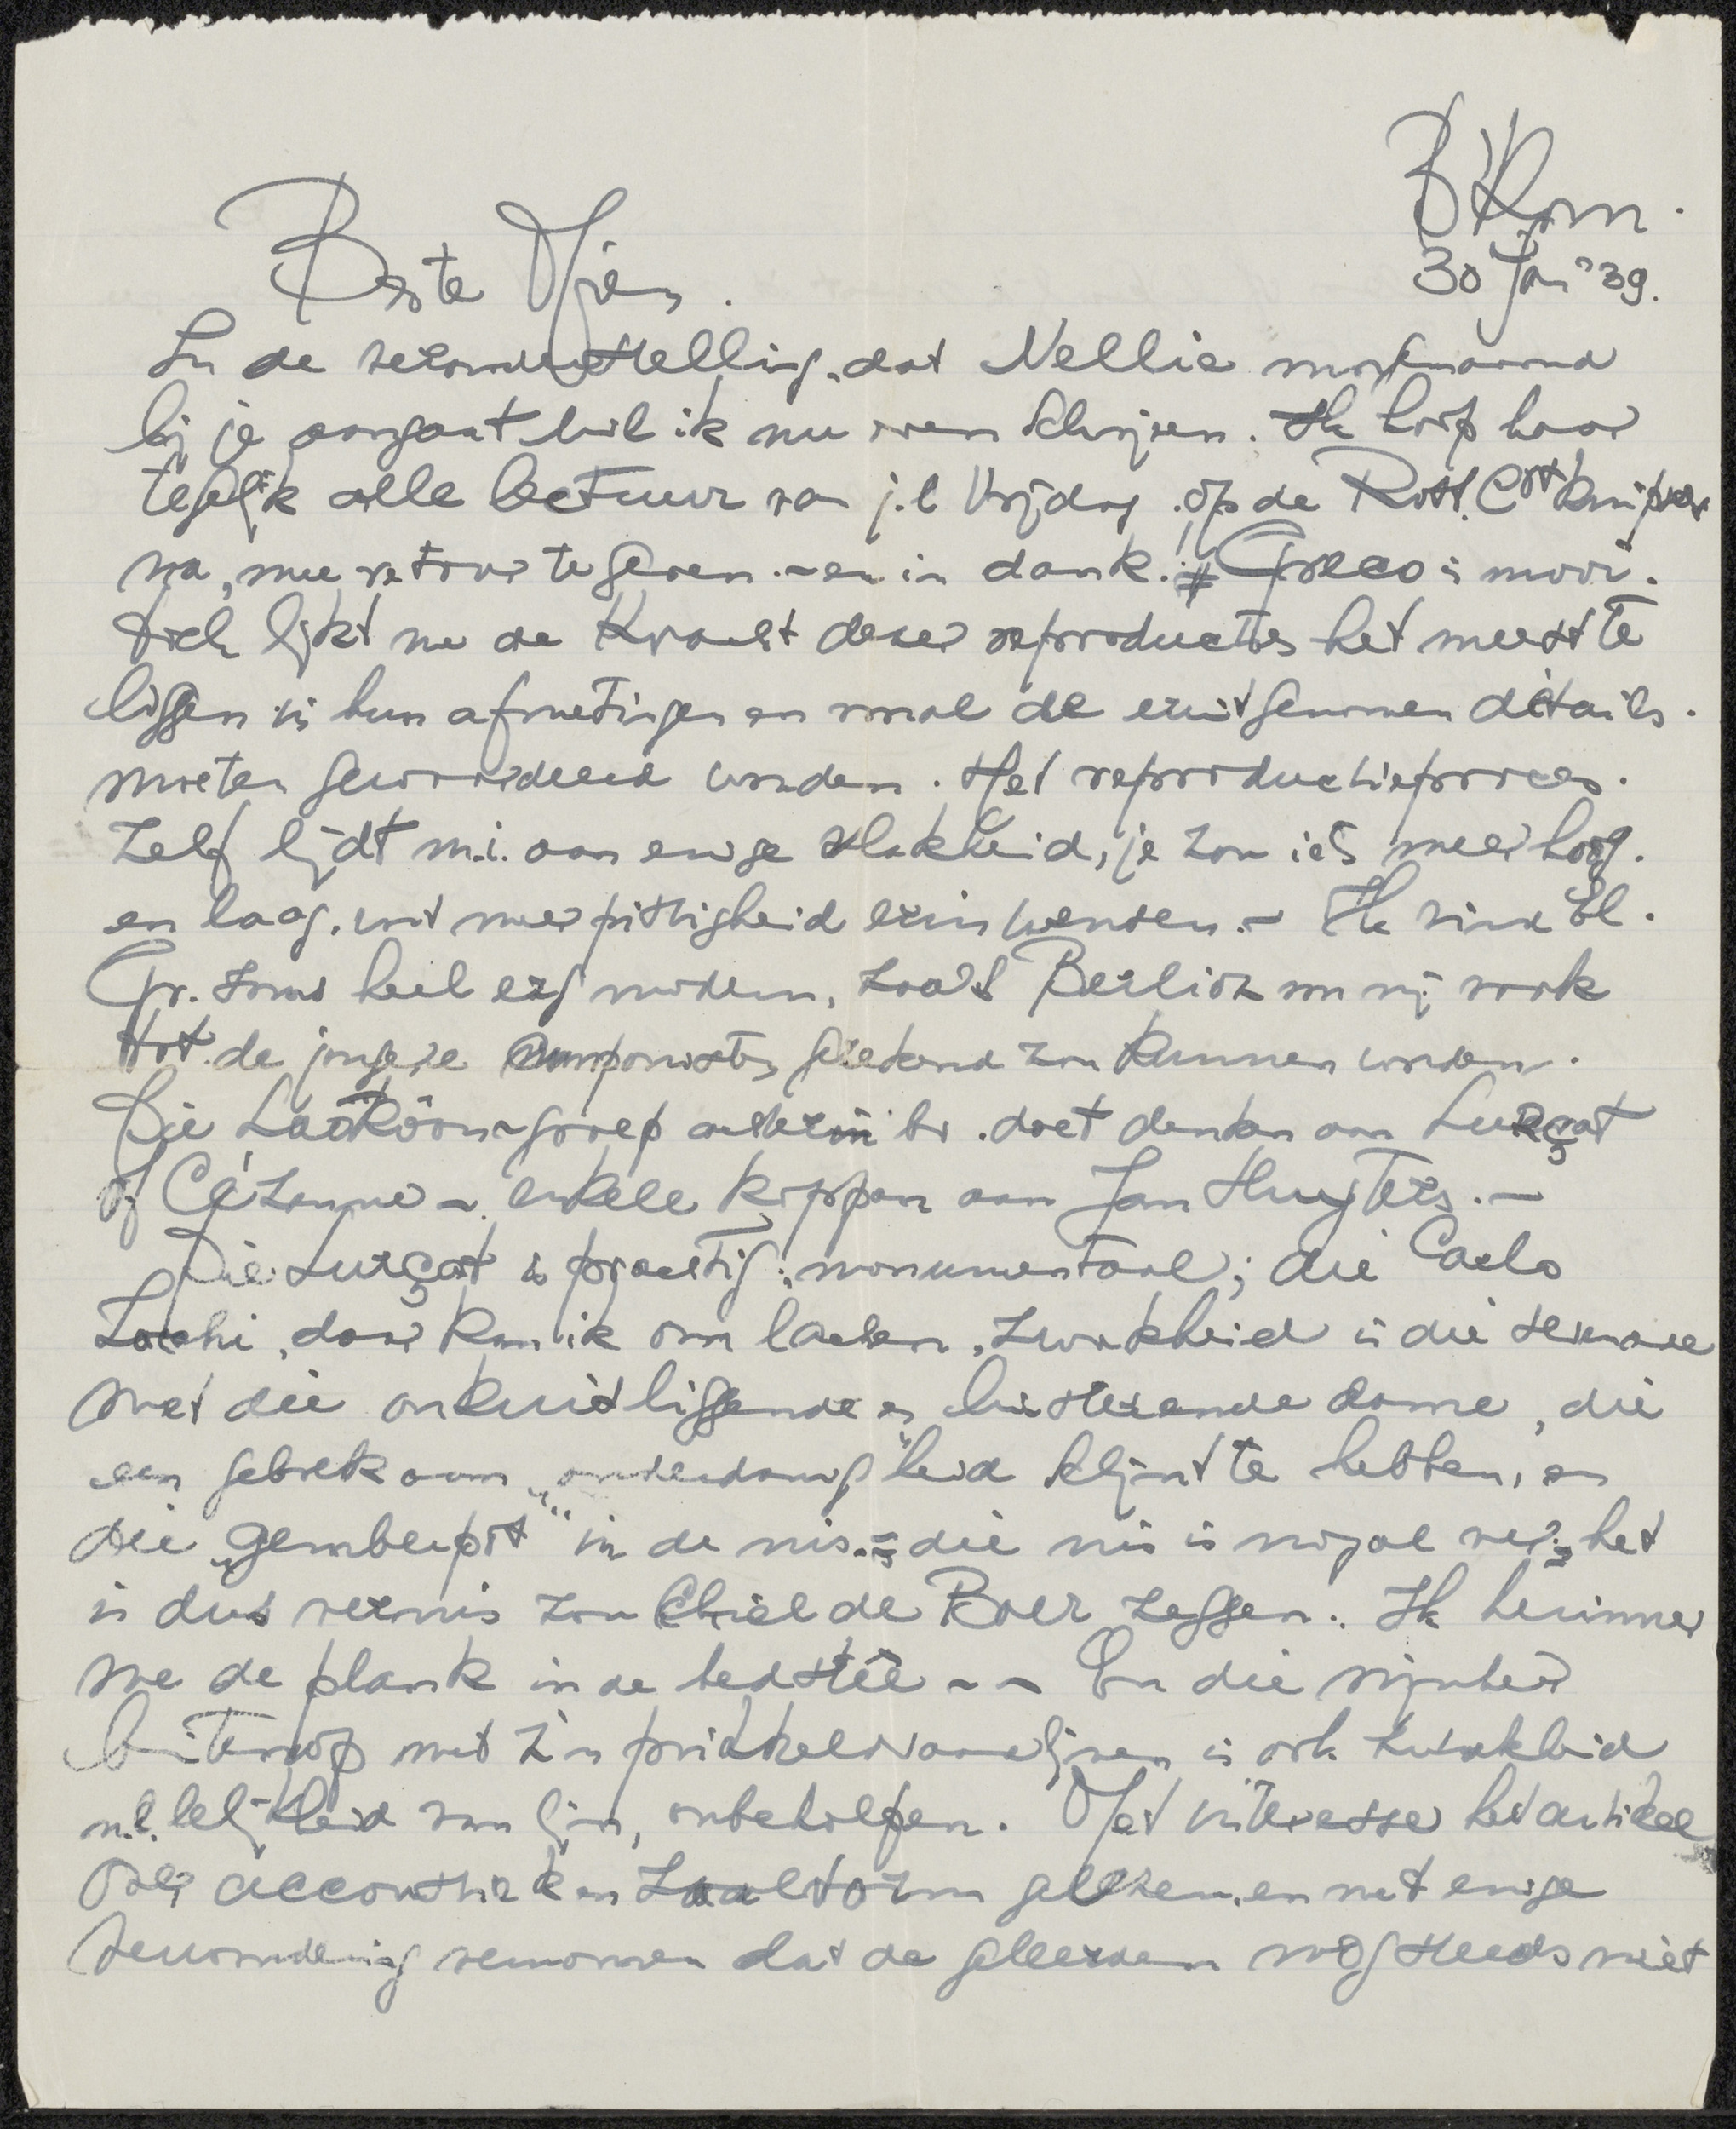 B Korn.
30 Jan '39.
Beste Mien.
In de veronderstelling, dat Nellie
bij je aangaat wil ik nu even schrijven. Ik hoop haar
tegelijk alle lectuur van j.l Vrijdag op de Rott. Crt knipsels
na, mee retour te geven. - en in dank! Greco is mooi.
toch lijkt me de Kracht dezer reproducties het meest te
liggen in hun afmetingen en vooral de eruitgenomen détails.
moeten gewaardeerd worden. Het reproductieproces.
Zelf lijdt m.i. aan enige vlakheid, je zou iets meer hoog.
en laag, wat meer pittigheid erin wensen. - Ik vind El.
Gr. soms heel erg modern, zoals Berlioz m mij vaak
tot de jongere componisten gerekend zou kunnen worden.
Die Laokoön-groep doet denken aan Lurçat
of Cézanne - enkele koppen aan Jan Huyters. -
Die Lurçat is prachtig, monumentaal; die Carlo
Lochi, daar kan ik om lachen, zwakheid is die
met die onderuitliggende en luisterende dame, die
een gebrek aan "onderdanigheid" schijnt te hebben, en
die "gemberpot" in de nis. = die nis is nogal ver = het
is dus vernis zou Chiel de Boer zeggen. Ik herinner
me de plank in de bedstee - - En die
met z'n prikkeldraadlijnen is ook zwakheid
n.l. lelijkheid van lijn, onbeholpen. Met interesse het artikel
over accoustiek en zaalvorm gelezen, en met enige
verwondering vernomen dat de geleerden nog steeds niet